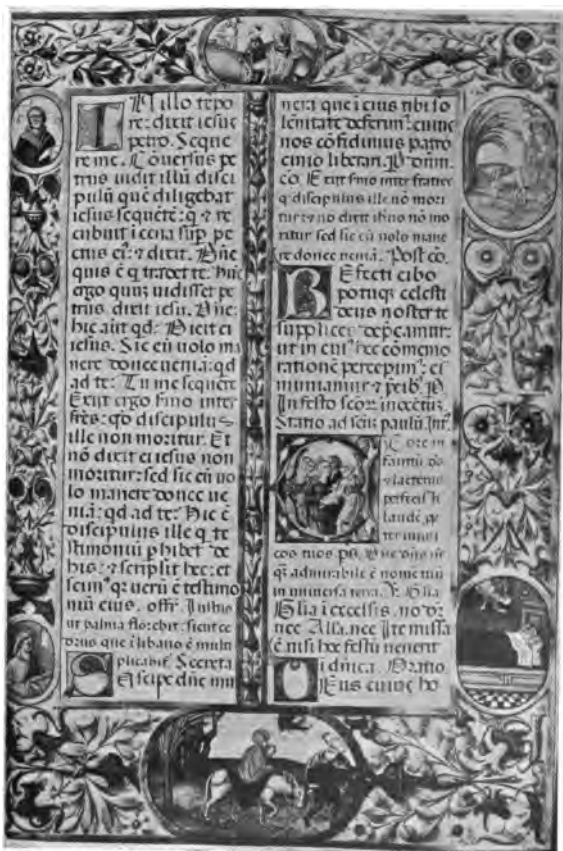 IN illo tēpo
re: dixit iesus
petro. Seque
re me. Cōuersus pe
trus uidit illū disci
pulū quē diligebat
iesus sequētē: q̄ ⁊ re
cubuit ī cena sup̄ pe
ctus ei⁹: ⁊ dixit. Dñe
quis ē q̄ tradet te. hūc
ergo quū uidisset pe
trus dixit iesu. Dñe:
hic aūt qd. Dicit ei
iesus. Sic eū uolo ma
nere donec ueniā: qd
ad te: Tu me sequere
Exiit ergo sermo inter
frēs: q̄ discipulus
ille non moritur. Et
nō dixit ei iesus non
moritur: sed sic eū uo
lo manere donec ue
niā: qd ad te: Hic ē
discipulus ille q̄ te
stimoniū phibet de
his: ⁊ scripsit hec: et
scim⁹ q̄ uerū ē testimo
niū eius. offr. Iustus
ut palma florebit: sicut ce
drus que ī libano ē multi
plicabit̄. Secreta
Suscipe dñe mu
nera que ī eius tibi so
lēnitate deferim⁹: cuius
nos cōfidimus patro
cinio liberari. P. domin.
cō. Exiit sermo inter fratres
q̄ discipulus ille nō mori
tur ⁊ nō dixit ihūs nō mo
ritur sed sic eū uolo mane
re donec ueniā. Post cō.
REfecti cibo
potuq̄ celesti
deus noster te
supplices dep̄camur:
ut in cui⁹ hec cōmemo
rationē percepim⁹: ei
muniamur ⁊ p̄cib. P
In festo scōꝝ innocētiū
Statio ad scūm paulū
EX ore in
fantiū
⁊ lactentiū
laudē
ter inimi
cos tuos ps. Dñe dñs
q̄ admirabile ē nomē tuū
in uniuersa terra. Glia
Glia ī excelsis. nō
nec Alla. nec Ite missa
ē nisi hoc festū uenerit
ī dñica. Oratio
DEus cuius ho